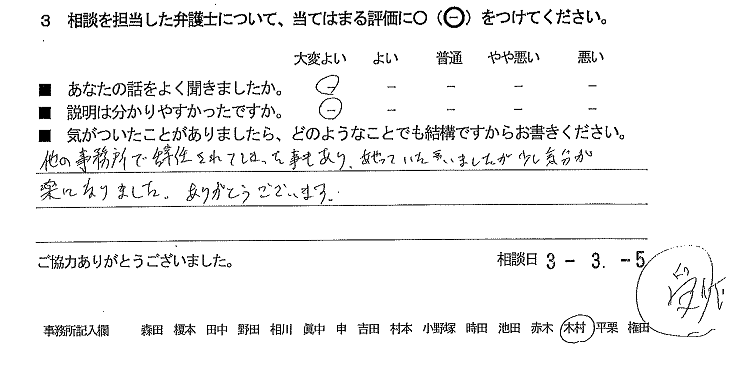 3 相談を担当した弁護士について、当てはまる評価に○（㊀）をつけてください。
大変よい よい 普通 やや悪い 悪い
■ あなたの話をよく聞きましたか。 － － － － －
■ 説明は分かりやすかったですか。 － － － － －
■ 気がついたことがありましたら、どのようなことでも結構ですからお書きください。
他の事務所で辞任されてしまった事もあり、いましたが少し気分が
楽になりました。ありがとうございます。
ご協力ありがとうございました。 相談日 3 － 3. －5
事務所記入欄 森田 榎本 田中 野田 相川 眞中 申 吉田 村本 小野塚 時田 池田 赤木 木村 平栗 権田